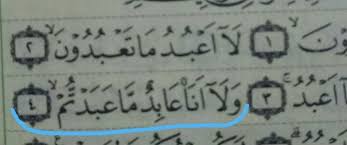 وْنَۙ ١ لَآ اَعْبُدُ مَا تَعْبُدُوْنَۙ ٢
اَعْبُدُۚ ٣ وَلَآ اَنَا۠ عَابِدٌ مَّا عَبَدْتُّمْۙ ٤